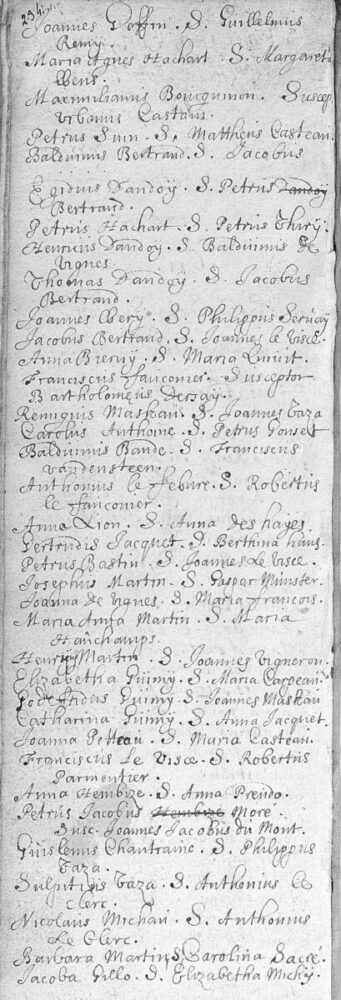 234
Joannes Goffin . S. Guillelmus
Remy.
Maria Agnes Hachart . S. Margareta
Wens.
Maximilianus Bourguinon . Suscep.
Urbanus Castau.
Petrus Suin . S. Mattheus Casteau.
Balduinus Bertrand . S. Jacobus
Egidius Dandoÿ . S. Petrus Dandoÿ
Bertrand.
Petrus Hachart . S. Petrus Thirÿ.
Henricus Dandoÿ . S. Balduinus de
Vignes
Thomas Dandoÿ . S. Jacobus
Bertrand.
Joannes Werÿ . S. Philippus
Jacobus Bertrand . S. Joannes le Visce.
Anna Biernÿ . S. Maria
Franciscus fauconier . Susceptor
Bartholomeus
Remigius Mastau . S. Joannes Taza
Carolus Anthoine . S. Petrus Gonset
Balduinus Bande . S. Franciscus
vandensteen.
Anthonius le febure . S. Robertus
le fauconier.
Anna Lion . S. Anna des hayes.
Gertrudis Jacquet . S. Berthina hans.
Petrus Bastin . S. Joannes Le Visce.
Josephus Martin . S. Gasper Munster.
Joanna de Vignes . S. Maria francois.
Maria Anna Martin . S. Maria
Hanchamps.
Henry Martin . S. Joannes Vigneron.
Elizabetha Guimÿ . S. Maria Carpeau.
Godefridus Guimÿ . S. Joannes Mastau
Catharina Guimÿ . S. Anna Jacquet.
Joanna Petteau . S. Maria Casteau.
Franciscus Le Visce . S. Robertus
Parmentier.
Anna Hembize . S. Anna Prendo.
Petrus Jacobus Hembize Moré.
Susc. Joannes Jacobus du Mont.
Guislenus Chantraine . S. Philippus
Taza.
Sulpitius Taza . S. Anthonius le
Clerc.
Nicolaus Michau . S. Anthonius
Le Clerc.
Barbara Martin S. Carolina Sacré.
Jacoba Gillo . S. Elizabetha Michÿ.